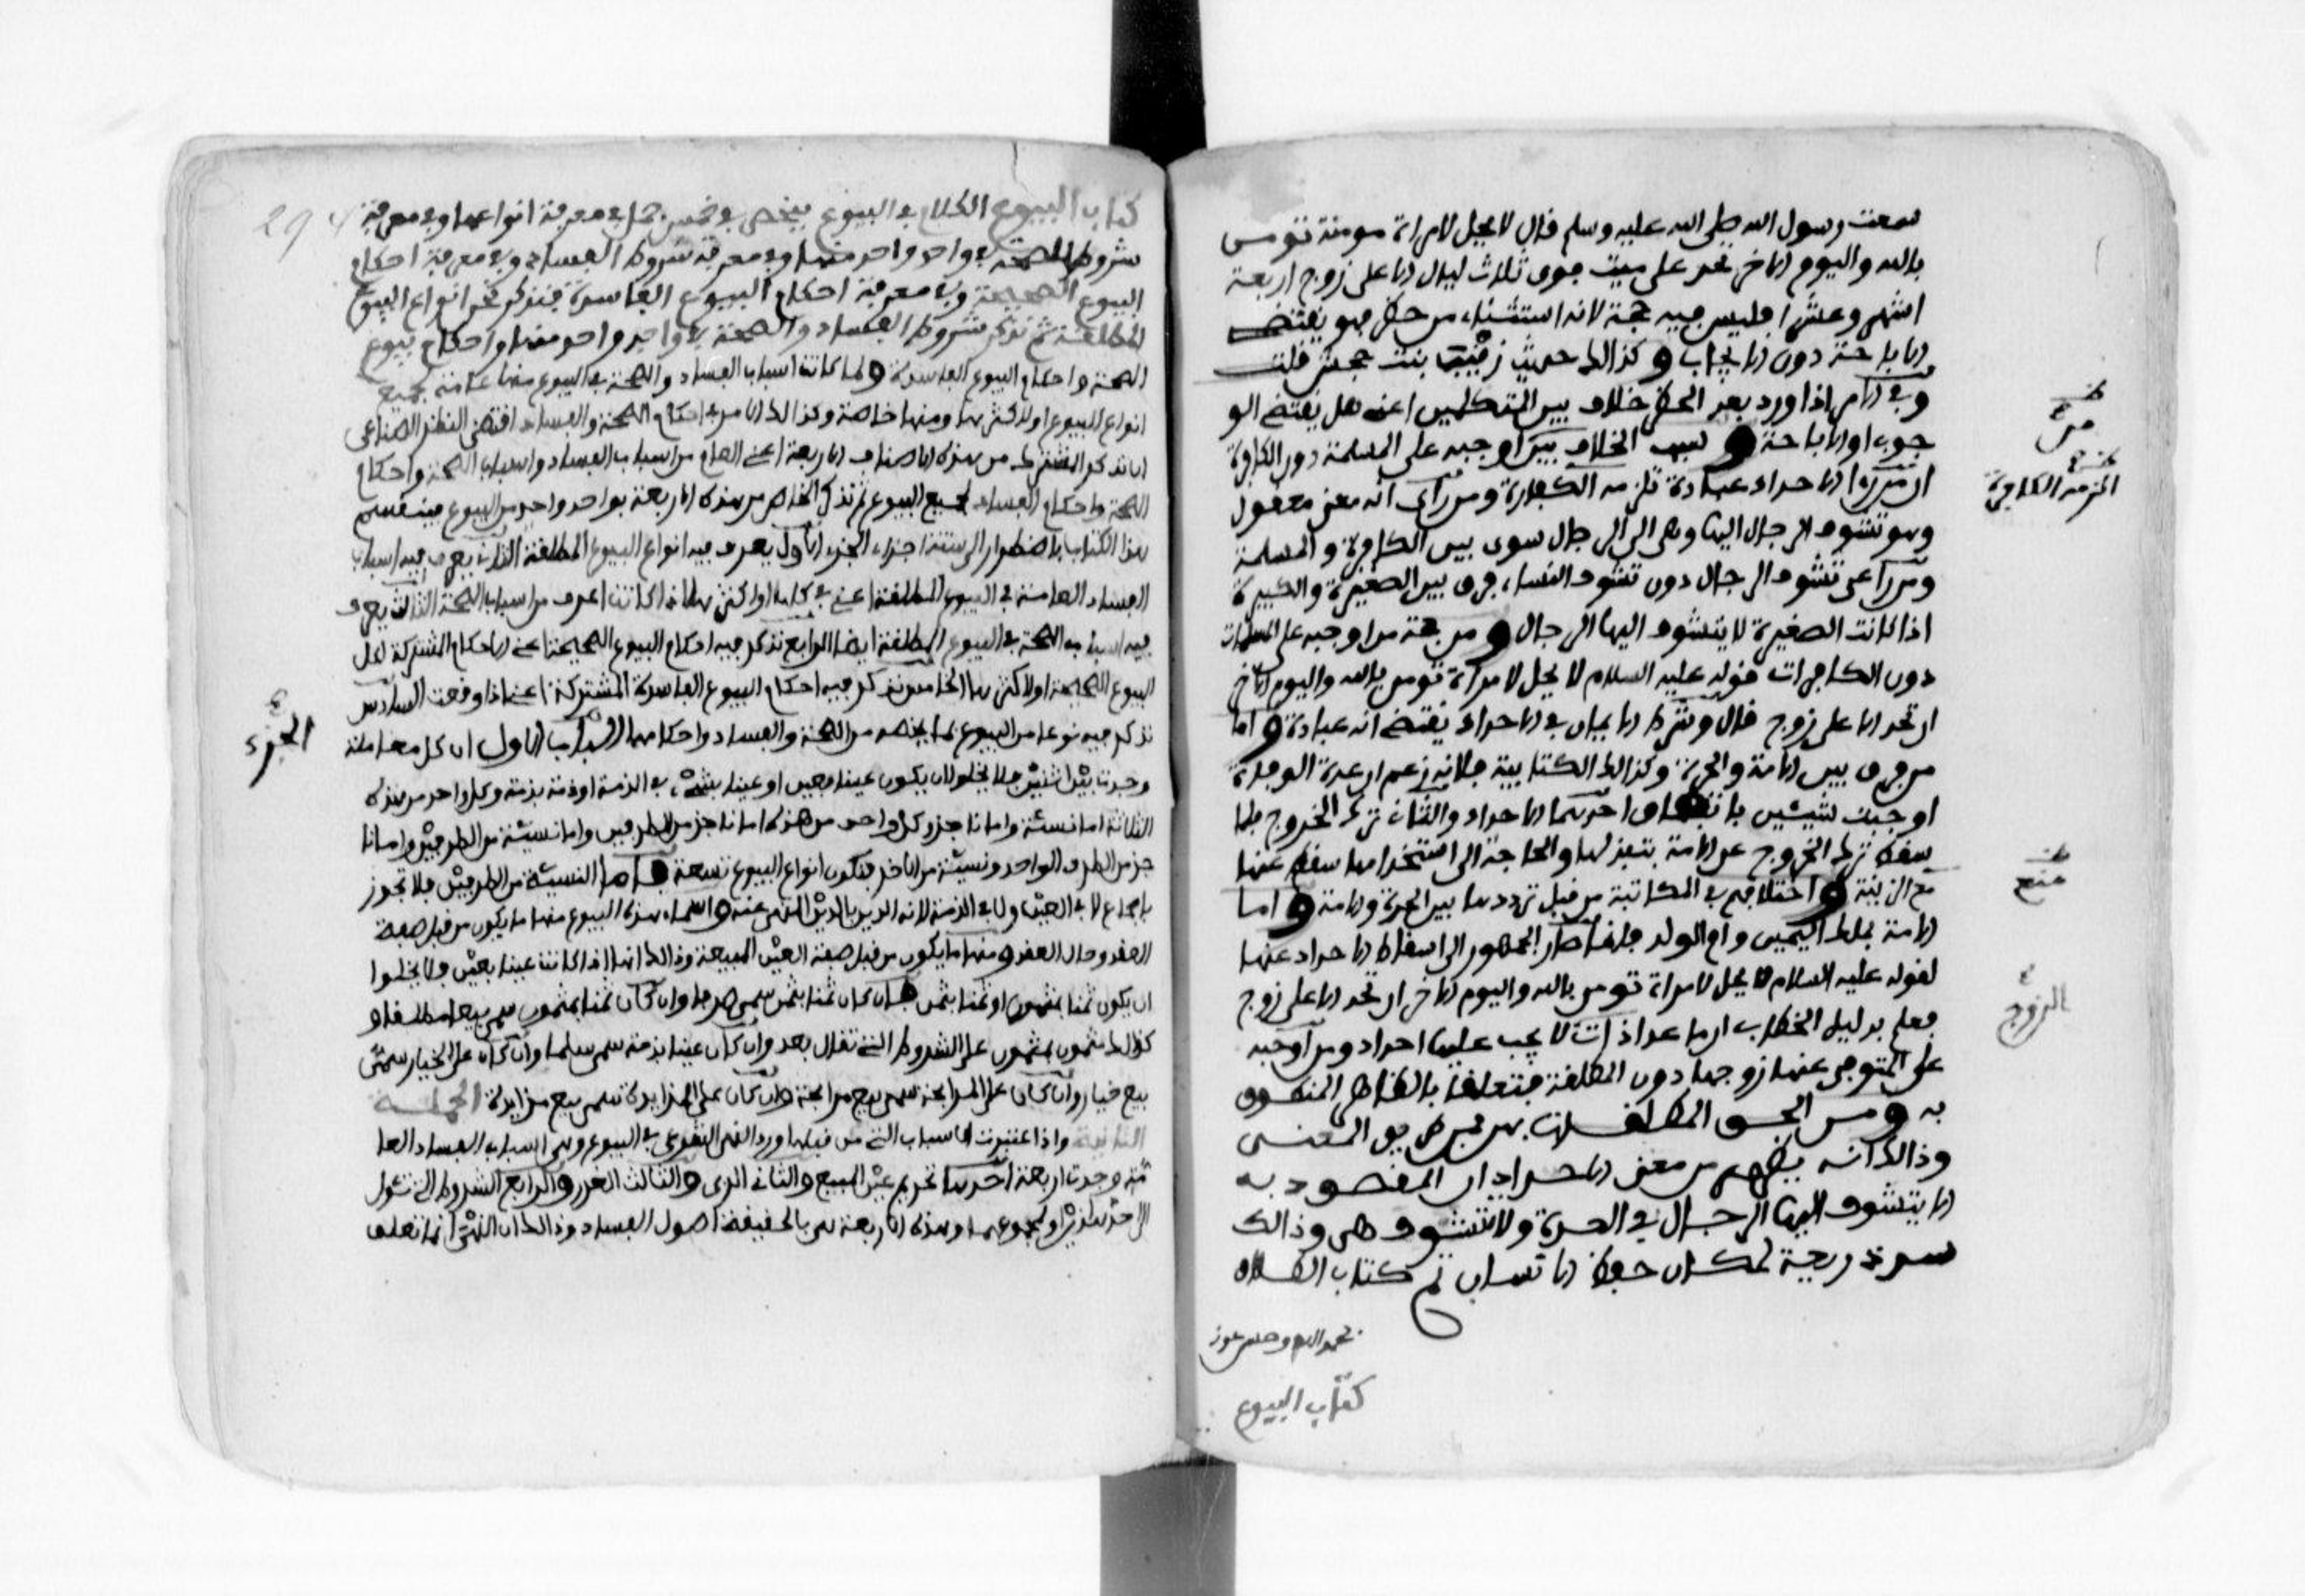 سمعت رسول الله صلى الله عليه وسلم قال لا يحل لامراة مومنة تومن
بالله واليوم الاخر تحد على ميت فوق ثلاث ليال الا على زوج اربعة
اشهر وعشرا فليس فيه حجة لانه استثناء من حظر فهو يقتضي
الاباحة دون الايجاب وكذالك حديث زينب بنت جحش قلت
وفي الامر اذا ورد بعد الحظر خلاف بين المتكلمين اعني هل يقتضي الو
جوب او الاباحة وسبب الخلاف بين من اوجبه على المسلمة دون الكافرة
ان من راى ان الاحداد عبادة لم تلزمه الكافرة ومن راى انه معنى معقول
وهو تشوف الرجال اليها وهي الى الرجال سوى بين الكافرة والمسلمة
ومن راعى تشوف الرجال دون تشوف النساء فرق بين الصغيرة والكبيرة
اذا كانت الصغيرة لا يتشوف اليها الرجال ومن حجة من اوجبه على المسلمات
دون الكافرات قوله عليه السلام لا يحل لامراة تومن بالله واليوم الاخر
ان تحد الا على زوج قال وشرط الايمان في الاحداد يقتضي انه عبادة واما
من فرق بين الامة والحرة وكذالك الكتابية فلانه زعم ان عدة الوفاة
اوجبت شيئين باتفاق احدهما الاحداد والثاني ترك الخروج فلما
سقط ترك الخروج عن الامة بتبذلها والحاجة الى استخدامها سقط عنها
منع الزينة واختلافهم في المكاتبة من قبل ترددها بين الحرة والامة واما
الامة بملك اليمين وام الولد فانما صار الجمهور الى اسقاط الاحداد عنها
لقوله عليه السلام لا يحل لامراة تومن بالله واليوم الاخر ان تحد الا على زوج
فعلم بدليل الخطاب ان ما عدا ذات لا يجب عليها احداد ومن اوجبه
على المتوفى عنها زوجها دون المطلقة فتعلق بالظاهر المنطوق
به ومن الحق المطلقات بهن فمن طريق المعنى
وذالك انه يظهر من معنى الاحداد ان المقصود به
الا يتشوف اليها الرجال في العدة ولا تتشوف هي وذالك
سد ذريعة لمكان حفظ الانساب تم كتاب الطلاق
بحمد الله وحسن عونه
كتاب البيوع
الزمه الكافرة
منع
الزوج
كتاب البيوع الكلام في البيوع ينحصر في خمس جمل في معرفة انواعها وفي معرفة
شروط الصحة في واحد واحد منها وفي معرفة شروط الفساد وفي معرفة احكام
البيوع الصحيحة وفي معرفة احكام البيوع الفاسدة فنذكر نحن انواع البيوع
المطلقة ثم نذكر شروط الفساد والصحة في واحد واحد منها واحكام بيوع
الصحة واحكام البيوع الفاسدة ولما كانت اسباب الفساد والصحة في البيوع منها عامة لجميع
انواع البيوع او لاكثرها ومنها خاصة وكذالك الامر في احكام الصحة والفساد اقتضى النظر الصناعي
ان نذكر المشترك من هذه الاصناف الاربعة اعني العام من اسباب الفساد واسباب الصحة واحكام
الصحة واحكام الفساد لجميع البيوع ثم نذكر الخاص من هذه الاربعة بواحد واحد من البيوع فينقسم
هذا الكتاب باضطرار الى ستة اجزاء الجزء الاول يعرف فيه انواع البيوع المطلقة الثاني يعرف فيه اسباب
الفساد العامة في البيوع المطلقة اعني في كلها او اكثرها اذ كانت اعرف من اسباب الصحة الثالث يعرف
فيه اسباب الصحة في البيوع المطلقة ايضا الرابع نذكر فيه احكام البيوع الصحيحة اعني الاحكام المشتركة لكل
البيوع الصحيحة او لاكثرها الخامس نذكر فيه احكام البيوع الفاسدة المشتركة اعني اذا وقعت السادس
نذكر فيه نوعا من البيوع بما يخصه من الصحة والفساد واحكامها الباب الاول ان كل معاملة
وجدت بين اثنين فلا يخلو ان يكون عينا بعين او عينا بشيء في الذمة او ذمة بذمة وكل واحد من هذه
الثلاثة اما نسئة واما ناجز وكل واحد من هذه اما ناجز من الطرفين واما نسيئة من الطرفين واما نا
جز من الطرف الواحد ونسيئة من الاخر فتكون انواع البيوع تسعة فاما النسيئة من الطرفين فلا تجوز
باجماع لا في العين ولا في الذمة لانه الدين بالدين المنهي عنه واسماء هذه البيوع منها ما يكون من قبل صفة
العقد وحال العقد ومنها ما يكون من قبل صفة العين المبيعة وذالك انها اذا كانت عينا بعين فلا يخلوا
ان يكون ثمنا بمثمون او ثمنا بثمن فان كان ثمنا بثمن سمي صرفا وان كان ثمنا بمثمون سمي بيعا مطلقا و
كذالك مثمون بمثمون على الشروط التي تقال بعد وان كان عينا بذمة سمي سلما وان كان على الخيار سمي
بيع خيار وان كان على المرابحة سمي بيع مرابحة وان كان على المزايدة سمي بيع مزايدة الجملة
الثانية واذا اعتبرت الاسباب التي من قبلها ورد النهي الشرعي في البيوع وهي اسباب الفساد العا
مة وجدت اربعة احدها تحريم عين المبيع والثاني الربى والثالث الغرر والرابع الشروط التي تئول
الى احد هذين او لمجموعهما وهذه الاربعة هي بالحقيقة اصول الفساد وذالك ان النهي انما تعلق
الجزء